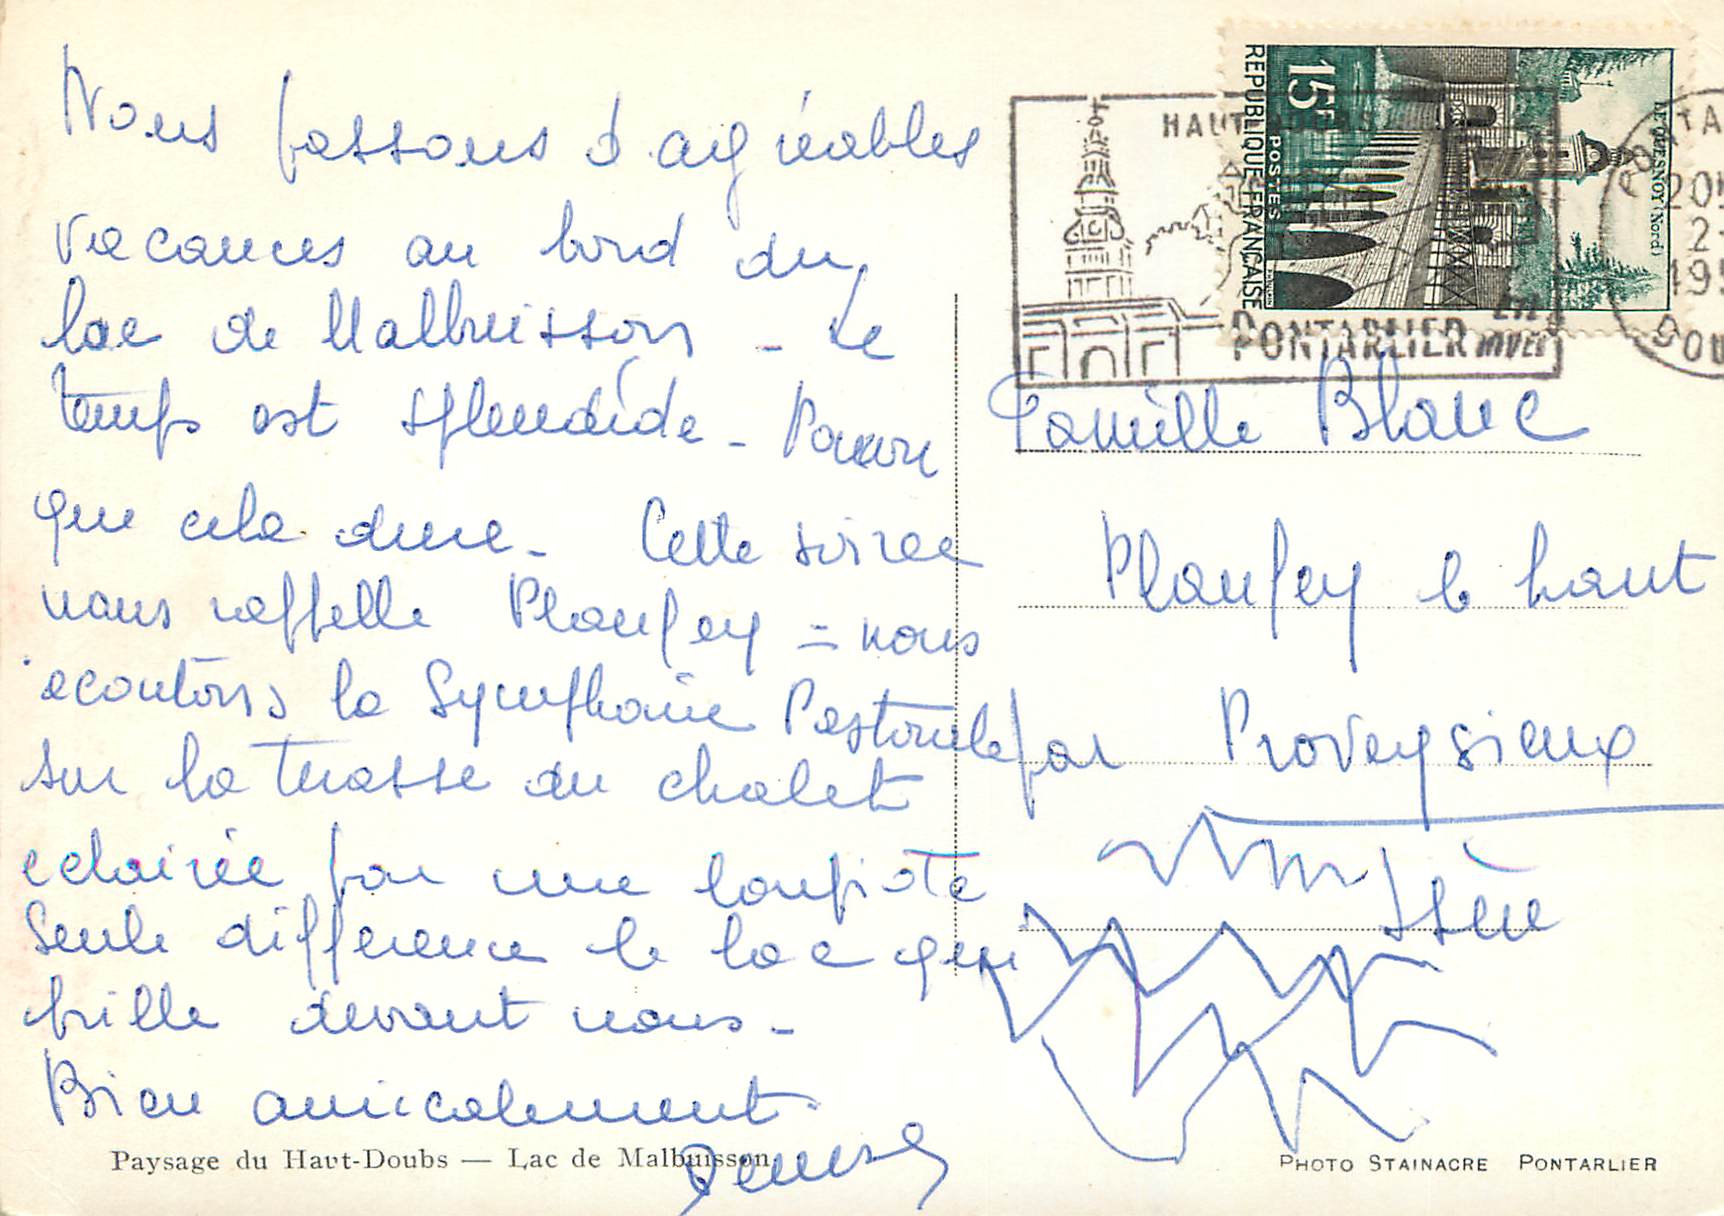 Nous passons d'agréables
vacances au bord du
lac de Malbuisson - Le
temps est splendide - Pourvu
que cela dure - Cette soirée
nous rappelle Planfay = nous
écoutons la Symphonie Pastorale
sur la terrasse du chalet
éclairée par une loupiote
Seule différence le lac qui
brille devant nous -
Bien amicalement
Denise
Paysage du Haut-Doubs — Lac de Malbuisson
HAUT-DOUBS
PONTARLIER
EN
HIVER
REPUBLIQUE FRANÇAISE
POSTES
15F
LE QUESNOY (Nord)
PONTA
20H
2-
195
DOU
Famille Blanc
Planfay le haut
par Proveysieux
Isère
PHOTO STAINACRE PONTARLIER